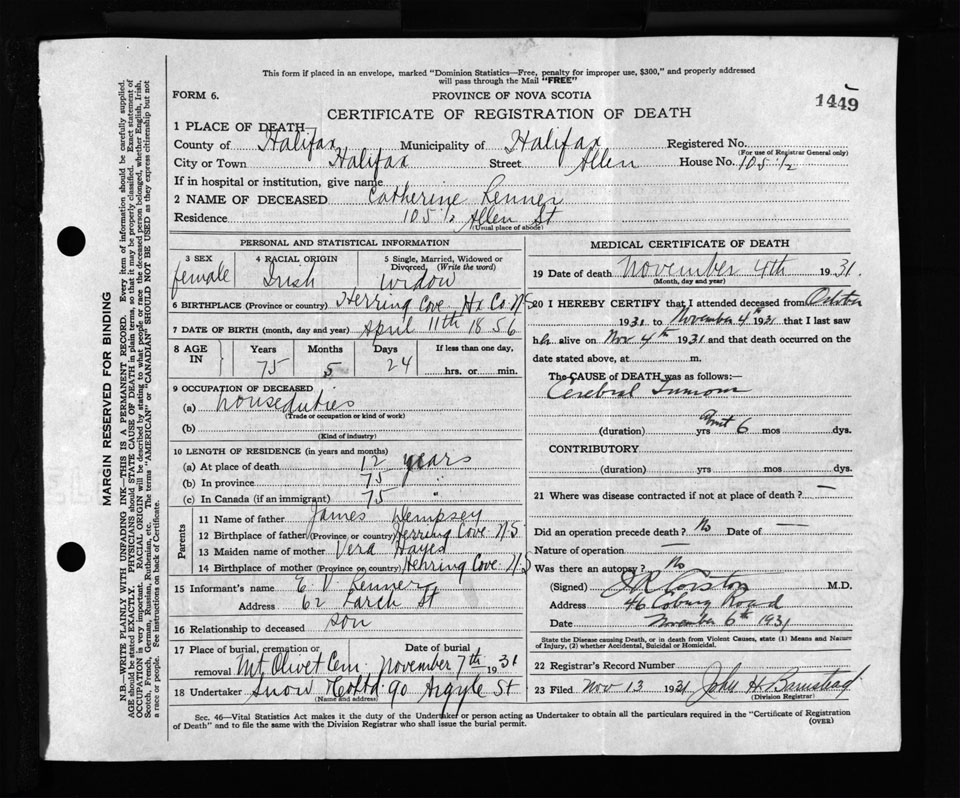 This form if placed in an envelope, marked "Dominion Statistics—Free, penalty for improper use, $300," and properly addressed
will pass through the Mail "FREE"
FORM 6.
PROVINCE OF NOVA SCOTIA
1449
CERTIFICATE OF REGISTRATION OF DEATH
1 PLACE OF DEATH—
County of Halifax Municipality of Halifax Registered No.
(For use of Registrar General only)
City or Town Halifax Street Allen House No. 105 1/2
If in hospital or institution, give name
2 NAME OF DECEASED Catherine Renner
Residence 105 1/2 Allen St
(Usual place of abode)
PERSONAL AND STATISTICAL INFORMATION
3 SEX
female
4 RACIAL ORIGIN
Irish
5 Single, Married, Widowed or
Divorced, (Write the word)
Widow
6 BIRTHPLACE (Province or country) Herring Cove Hx Co. N.S
7 DATE OF BIRTH (month, day and year) April 11th 1856
8 AGE
IN
Years
75
Months
5
Days
24
If less than one day,
hrs. or min.
9 OCCUPATION OF DECEASED
(a) houseduties
(Trade or occupation or kind of work)
(b)
(Kind of industry)
10 LENGTH OF RESIDENCE (in years and months)
(a) At place of death 12 years
(b) In province 75 "
(c) In Canada (if an immigrant) 75 "
Parents
11 Name of father James Dempsey
12 Birthplace of father (Province or country) Herring Cove N.S
13 Maiden name of mother Vera Hayes
14 Birthplace of mother (Province or country) Herring Cove N.S
15 Informant's name E. V. Renner
Address 62 Larch St
16 Relationship to deceased son
17 Place of burial, cremation or
removal Mt Olivet Cem.
Date of burial
November 7th 1931
18 Undertaker Snow & Co Ltd 90 Argyle St
(Name and address)
MEDICAL CERTIFICATE OF DEATH
19 Date of death November 4th 1931.
(Month, day and year)
20 I HEREBY CERTIFY that I attended deceased from October
1931 to November 4th 1931 that I last saw
her alive on Nov 4th 1931 and that death occurred on the
date stated above, at m.
The CAUSE of DEATH was as follows:—
Cerebral Tumour
(duration) yrs 6 mos dys.
CONTRIBUTORY
(duration) yrs mos dys.
21 Where was disease contracted if not at place of death? —
Did an operation precede death? No Date of —
Nature of operation —
Was there an autopsy? No
(Signed) J R Corston M.D.
Address 46 Coburg Road
Date November 6th 1931
State the Disease causing Death, or in death from Violent Causes, state (1) Means and Nature
of Injury, (2) whether Accidental, Suicidal or Homicidal.
22 Registrar's Record Number
23 Filed Nov 13 1931 John H. Barnstead
(Division Registrar)
Sec. 46—Vital Statistics Act makes it the duty of the Undertaker or person acting as Undertaker to obtain all the particulars required in the "Certificate of Registration
of Death" and to file the same with the Division Registrar who shall issue the burial permit.
(OVER)
MARGIN RESERVED FOR BINDING
N.B.—WRITE PLAINLY WITH UNFADING INK—THIS IS A PERMANENT RECORD. Every item of information should be carefully supplied.
AGE should be stated EXACTLY. PHYSICIANS should STATE CAUSE OF DEATH in plain terms, so that it may be properly classified. Exact statement of
OCCUPATION is very important. RACIAL ORIGIN will be described by stating to what people or race the deceased person belonged, whether English, Irish,
Scotch, French, German, Russian, Ruthenian, etc. The terms "AMERICAN" or "CANADIAN" SHOULD NOT BE USED as they express citizenship but not
a race or people. See instructions on back of Certificate.